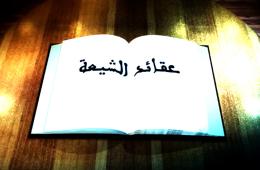 عقائد الشيعة